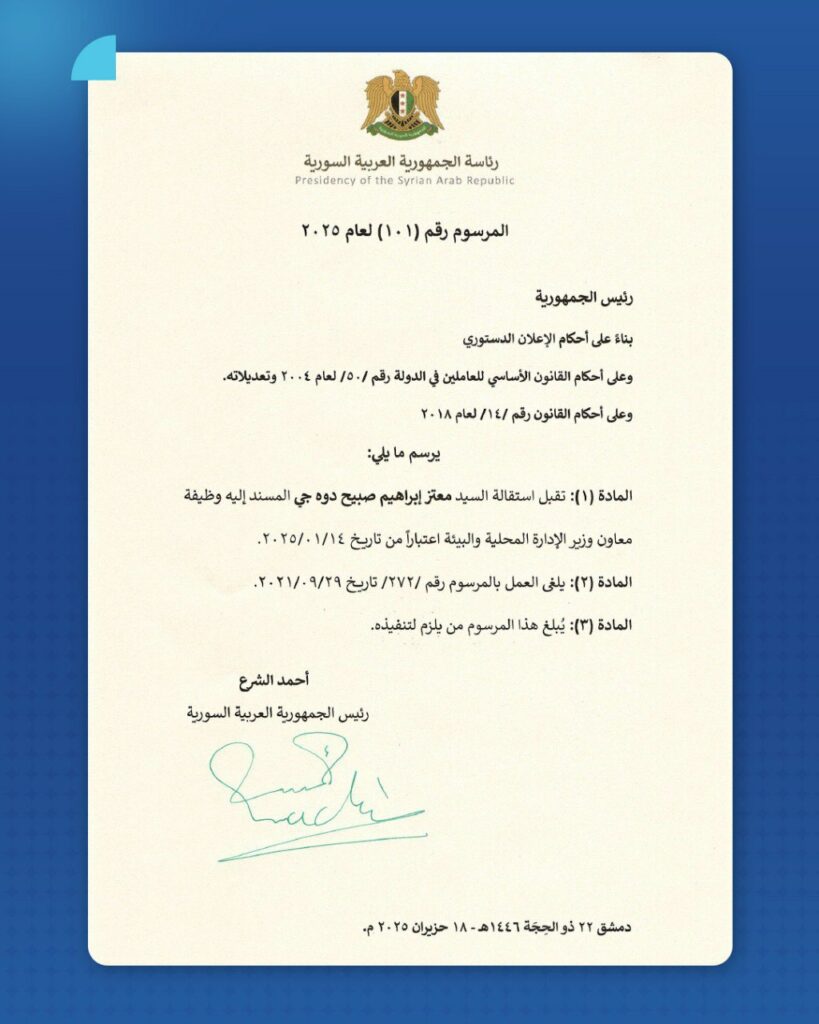 رئاسة الجمهورية العربية السورية
Presidency of the Syrian Arab Republic
المرسوم رقم (١٠١) لعام ٢٠٢٥
رئيس الجمهورية
بناءً على أحكام الإعلان الدستوري
وعلى أحكام القانون الأساسي للعاملين في الدولة رقم /٥٠/ لعام ٢٠٠٤ وتعديلاته.
وعلى أحكام القانون رقم /١٤/ لعام ٢٠١٨
يرسم ما يلي:
المادة (١): تقبل استقالة السيد معتز إبراهيم صبيح دوه جي المسند إليه وظيفة
معاون وزير الإدارة المحلية والبيئة اعتباراً من تاريخ ٢٠٢٥/٠١/١٤.
المادة (٢): يلغى العمل بالمرسوم رقم /٢٧٢/ تاريخ ٢٠٢١/٠٩/٢٩.
المادة (٣): يُبلغ هذا المرسوم من يلزم لتنفيذه.
أحمد الشرع
رئيس الجمهورية العربية السورية
دمشق ٢٢ ذو الحِجّة ١٤٤٦هـ - ١٨ حزيران ٢٠٢٥ م.